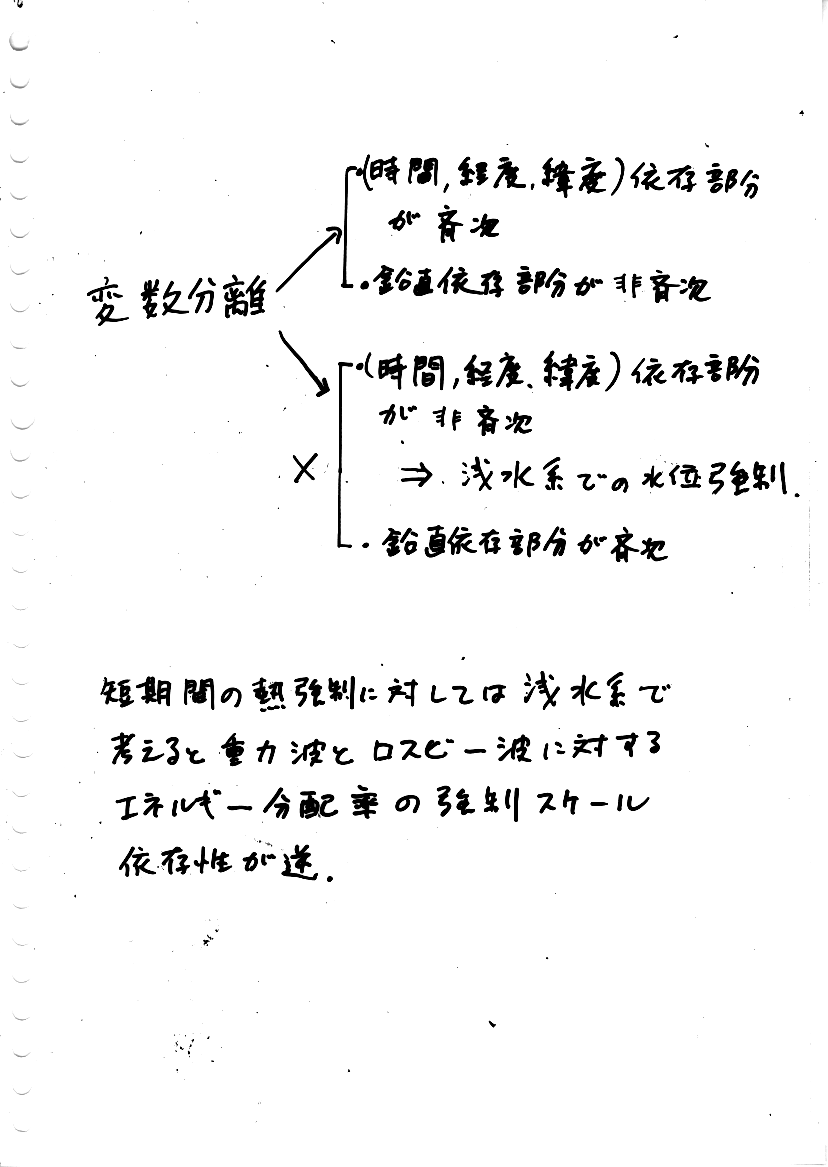 ・(時間,経度,緯度)依存部分
が斉次
変数分離
・鉛直依存部分が非斉次
・(時間,経度、緯度)依存部分
が非斉次
×
⇒ 浅水系での水位強制.
・鉛直依存部分が斉次
短期間の熱強制に対しては浅水系で
考えると重力波とロスビー波に対する
エネルギー分配率の強制スケール
依存性が逆.